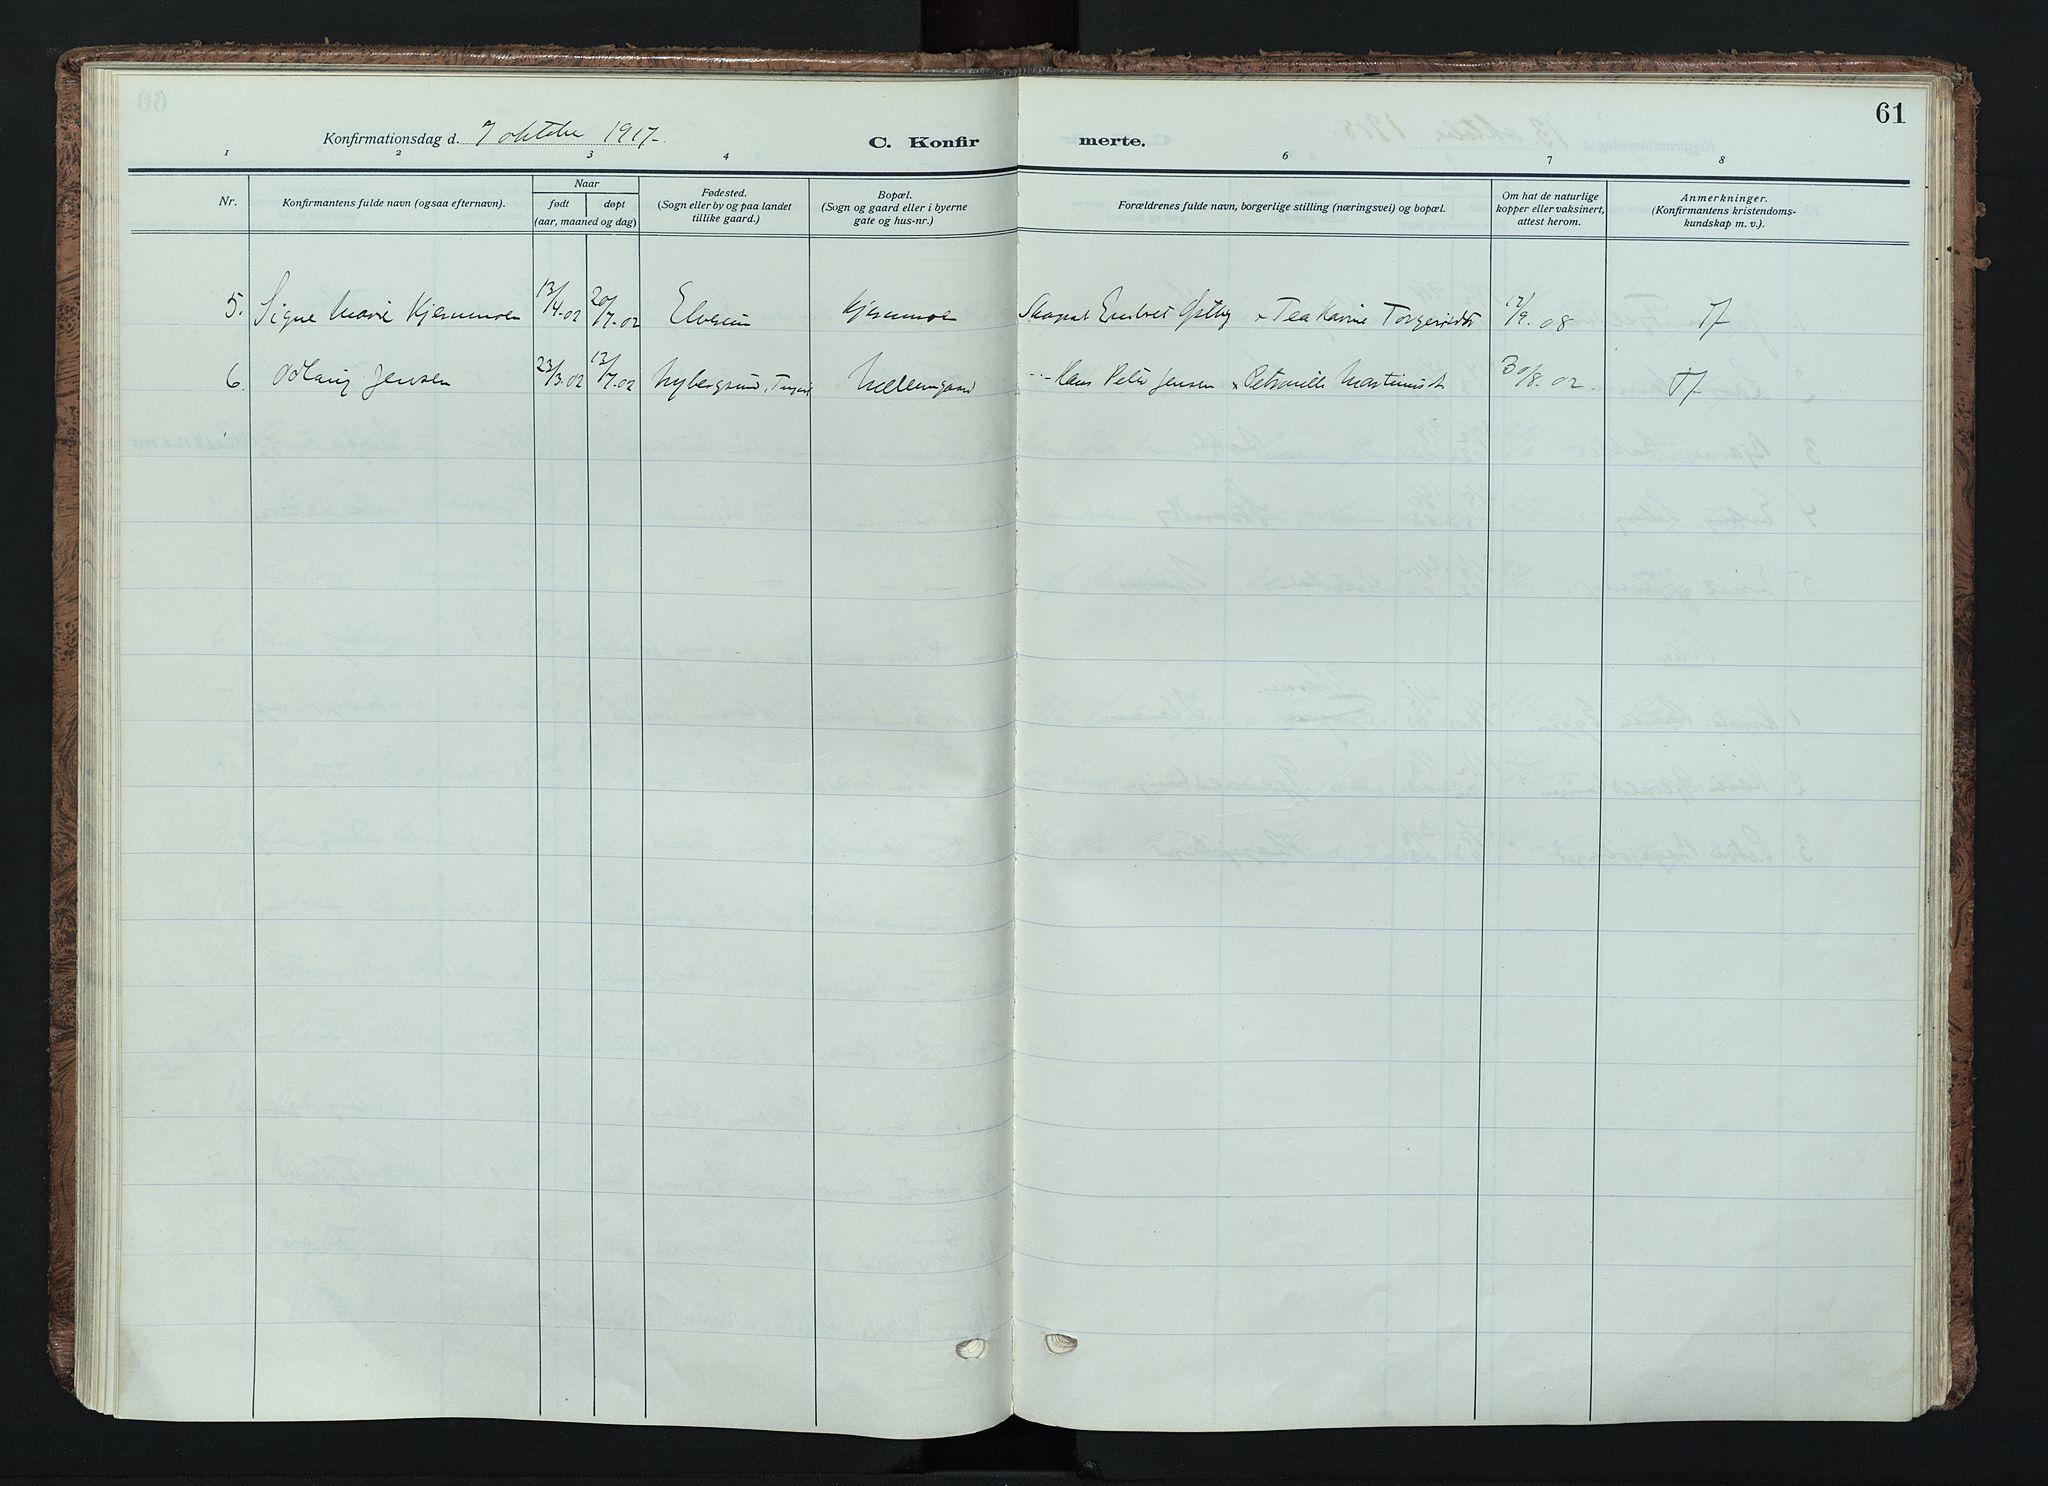 61
Konfirmationsdag d. 7 oktober 1917. C. Konfirmerte.
1 2 3 4 6 7 8
Nr. Konfirmantens fulde navn (ogsaa efternavn). Naar født døpt (aar, maaned og dag) Fødested. (Sogn eller by og paa landet tillike gaard.) Bopæl. (Sogn og gaard eller i byerne gate og hus-nr.) Forældrenes fulde navn, borgerlige stilling (næringsvei) og bopæl. Om hat de naturlige kopper eller vaksinert, attest herom. Anmerkninger. (Konfirmantens kristendomskundskap m. v.).
5. Signe Marie Kjernmoen 13/4-02 20/7-02 Elverum Kjernmoen Østby Tea Karine Torgersdtr 17/9.08 Tf
6. Oddlaug Jensen 23/3.02 13/7.02 Nybergsund, Trysil Hans Peter Jensen Petronille Martinusdtr 30/8.02. Tf